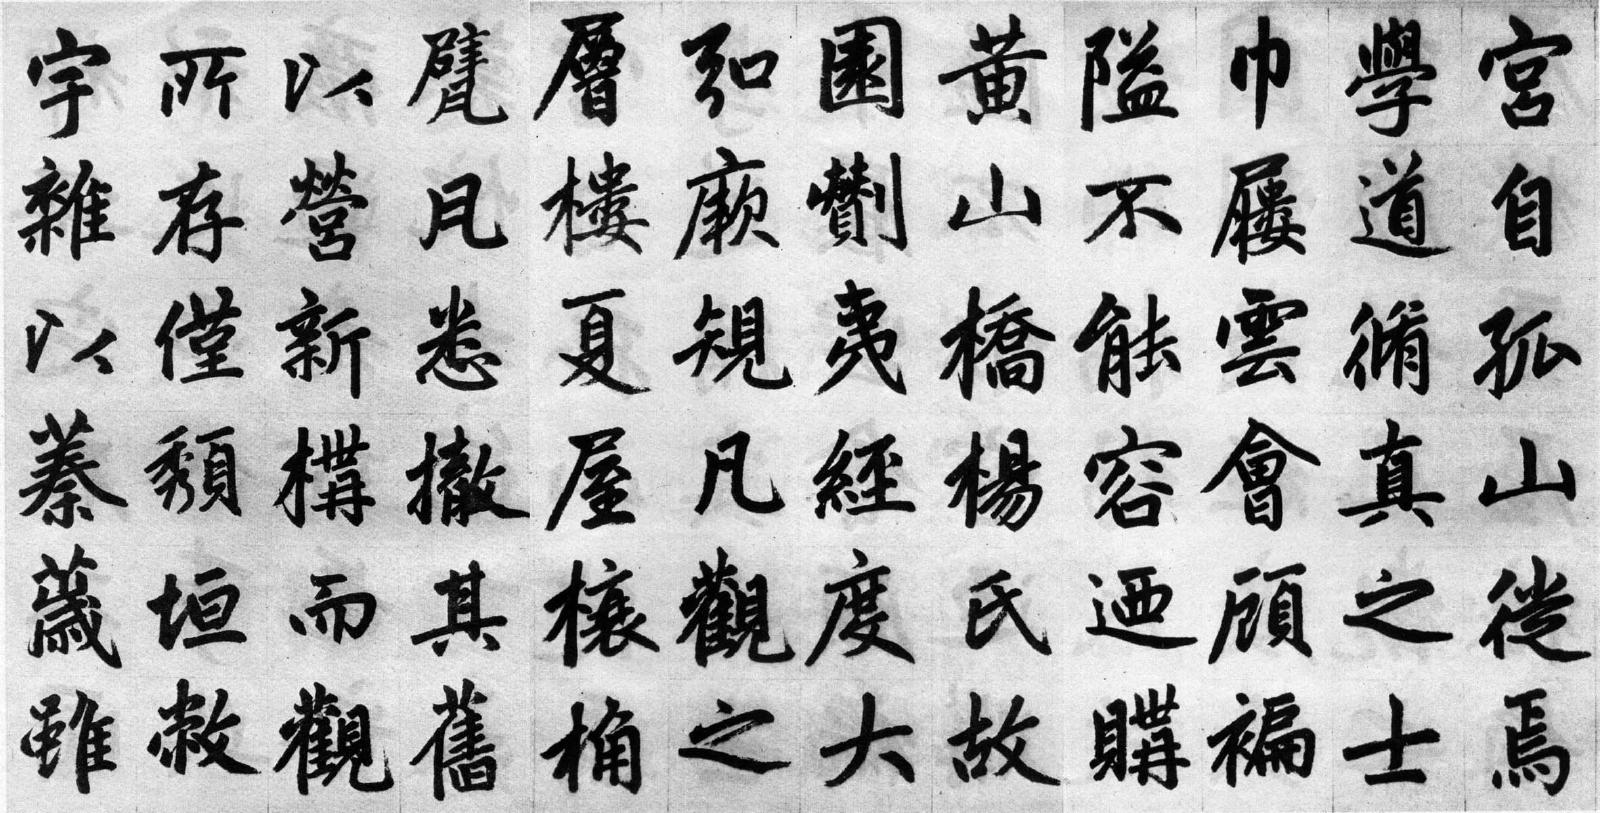 宮自孤山徙焉
學道脩真之士
巾屨雲會顧褊
隘不能容迺購
黃山橋楊氏故
園劗夷經度大
弘厥規凡觀之
層樓夏屋榱桷
甓凡悉撤其舊
以營新構而觀
所存僅頹垣敝
宇雜以蓁薉雖